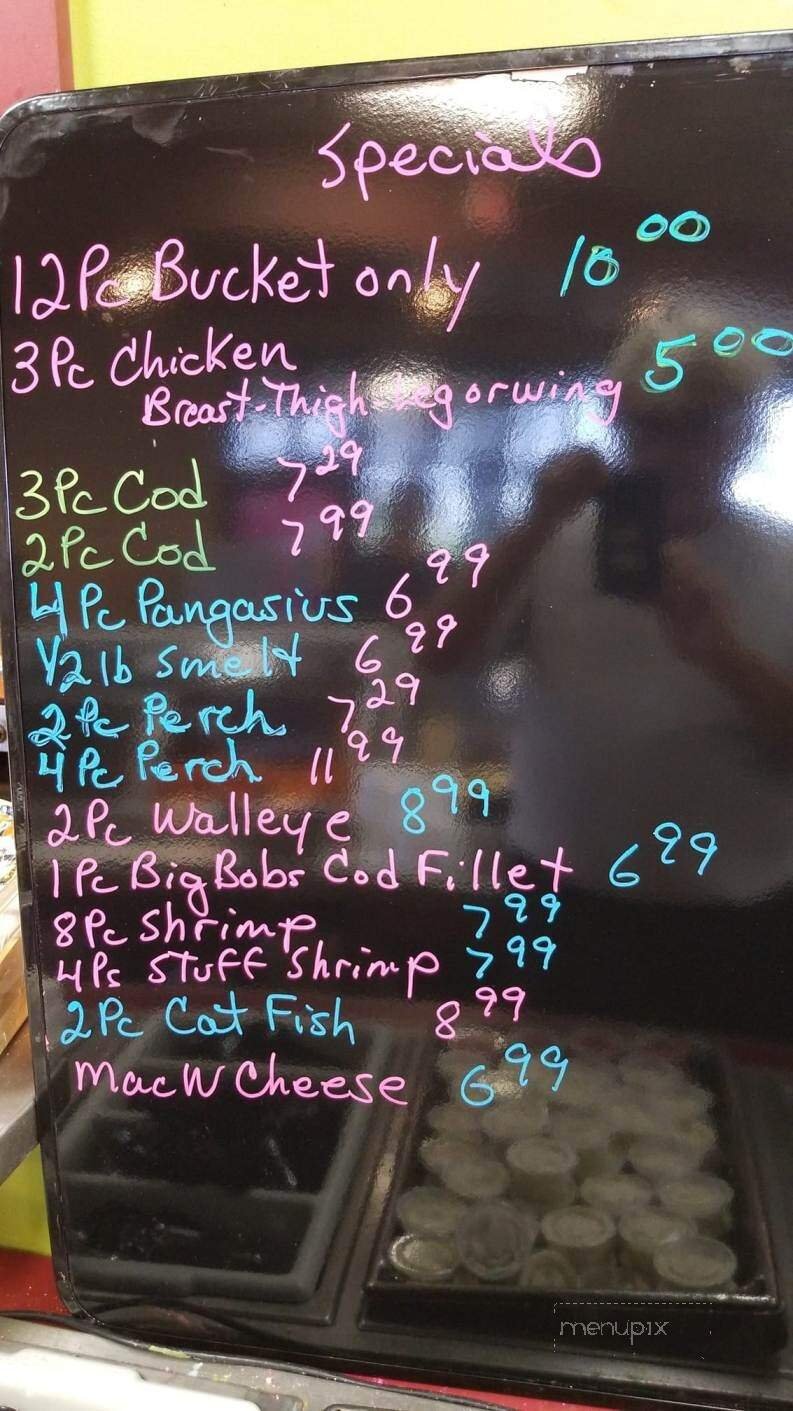 Specials
12Pc Bucket only 10 00
3Pc Chicken 5 00
Breast-Thigh Leg or wing
3Pc Cod 7 29
2Pc Cod 7 99
4Pc Pangasius 6 99
1/2 lb Smelt 6 99
2Pc Perch 7 29
4Pc Perch 11 99
2Pc Walleye 8 99
1Pc Big Bobs Cod Fillet 6 99
8Pc Shrimp 7 99
4Ps Stuff Shrimp 7 99
2Pc Cat Fish 8 99
Mac W Cheese 6 99
menupix